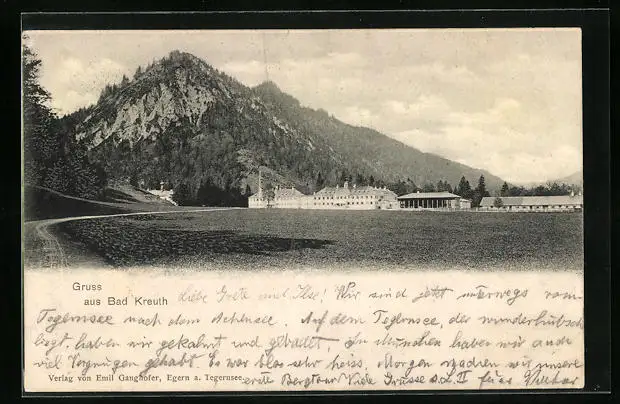 Gruss
aus Bad Kreuth
Liebe Grete und Ilse! Wir sind jetzt unterwegs vom
Tegernsee nach dem Achensee. Auf dem Tegernsee, der wunderhübsch
liegt, haben wir gekahnt und gebadet. In München haben wir auch
viel Vergnügen gehabt. Es war blos sehr heiss. Morgen machen wir unsere
Verlag von Emil Ganghofer, Egern a. Tegernsee.
erste Bergtour Viele Grüsse